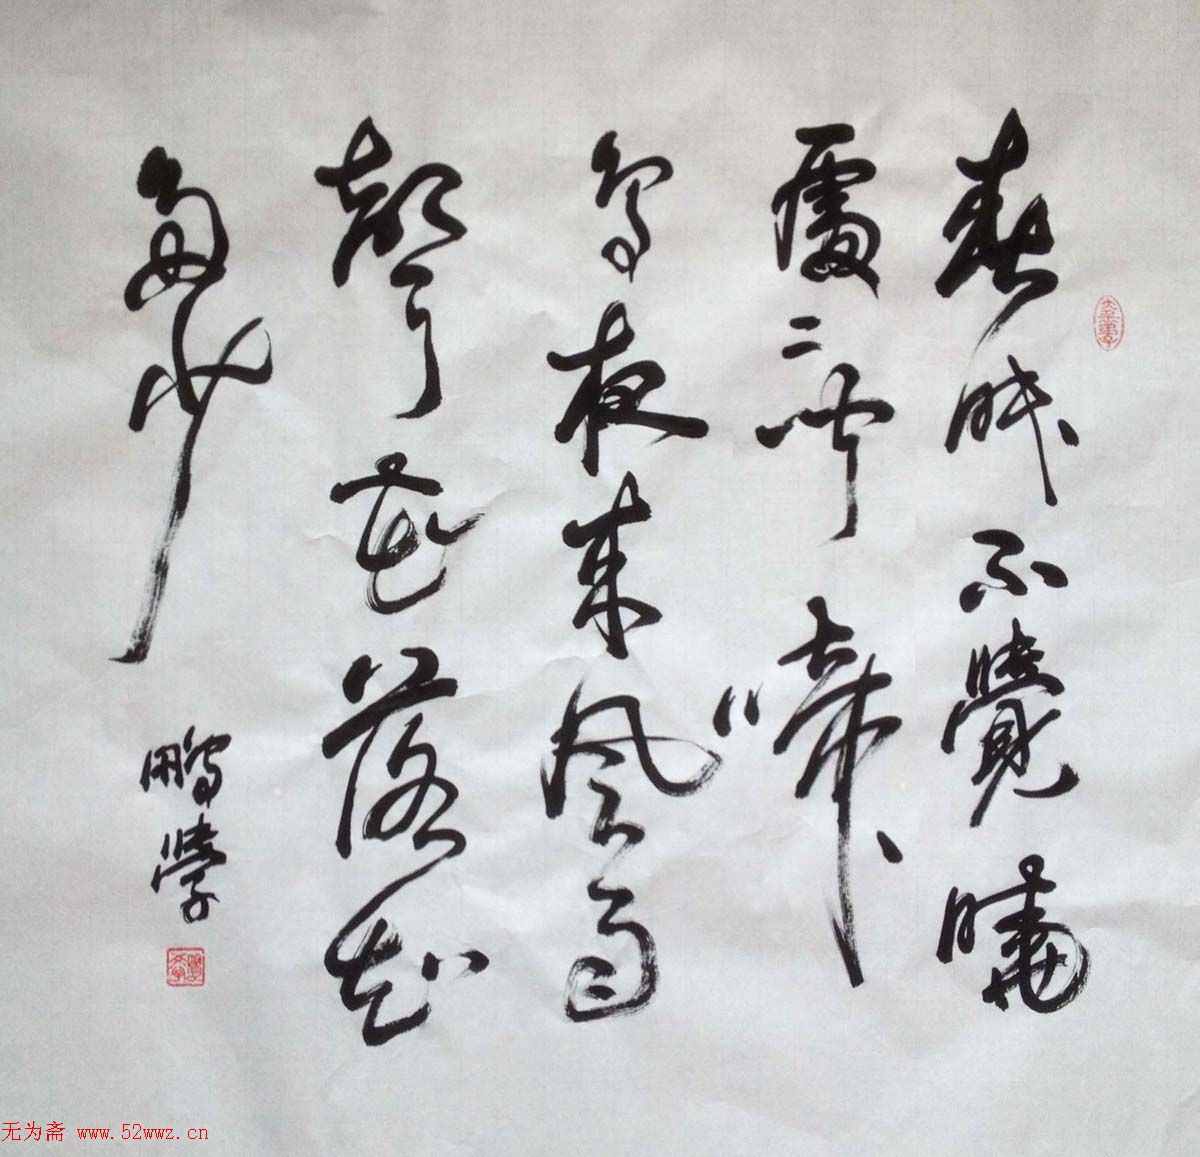 春眠不覺曉
處二聞啼
鳥夜来風雨
聲花落知
多少
鵬學
无为斋 www.52wwz.cn